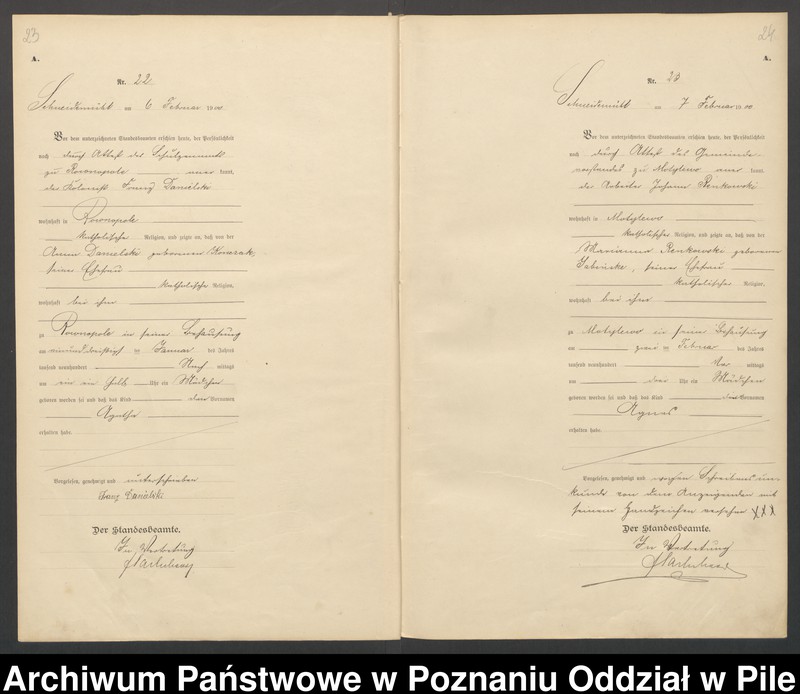 23
A.
Nr. 22
Schneidemühl am 6 Februar 1900
Vor dem unterzeichneten Standesbeamten erschien heute, der Persönlichkeit
nach durch Attest des Schulzenamts
zu Rownopole anerkannt,
der Kolonist Franz Danielski
wohnhaft in Rownopole
katholischer Religion, und zeigte an, daß von der
Anna Danielski geborenen
seiner Ehefrau
katholischer Religion,
wohnhaft bei ihm
zu Rownopole in seiner Behausung
am einunddreißigsten Januar des Jahres
tausend neunhundert Nachmittags
um ein ein halb Uhr ein Mädchen
geboren worden sei und daß das Kind den Vornamen
Agathe
erhalten habe.
Vorgelesen, genehmigt und unterschrieben
Franz Danielski
Der Standesbeamte.
In Vertretung
24
A.
Nr. 23
Schneidemühl am 7 Februar 1900
Vor dem unterzeichneten Standesbeamten erschien heute, der Persönlichkeit
nach durch Attest des Gemeinde-
vorstandes zu Motylewo anerkannt,
der Arbeiter Johann Renkowski
wohnhaft in Motylewo
katholischer Religion, und zeigte an, daß von der
Marianna Renkowski geborenen
seiner Ehefrau
katholischer Religion,
wohnhaft bei ihm
zu Motylewo in seiner Behausung
am zwei Februar des Jahres
tausend neunhundert Vormittags
um drei Uhr ein Mädchen
geboren worden sei und daß das Kind den Vornamen
Agnes
erhalten habe.
Vorgelesen, genehmigt und wegen Schreibensun-
kunde von dem Anzeigenden mit
seinem Handzeichen versehen XXX
Der Standesbeamte.
In Vertretung
Archiwum Państwowe w Poznaniu Oddział w Pile